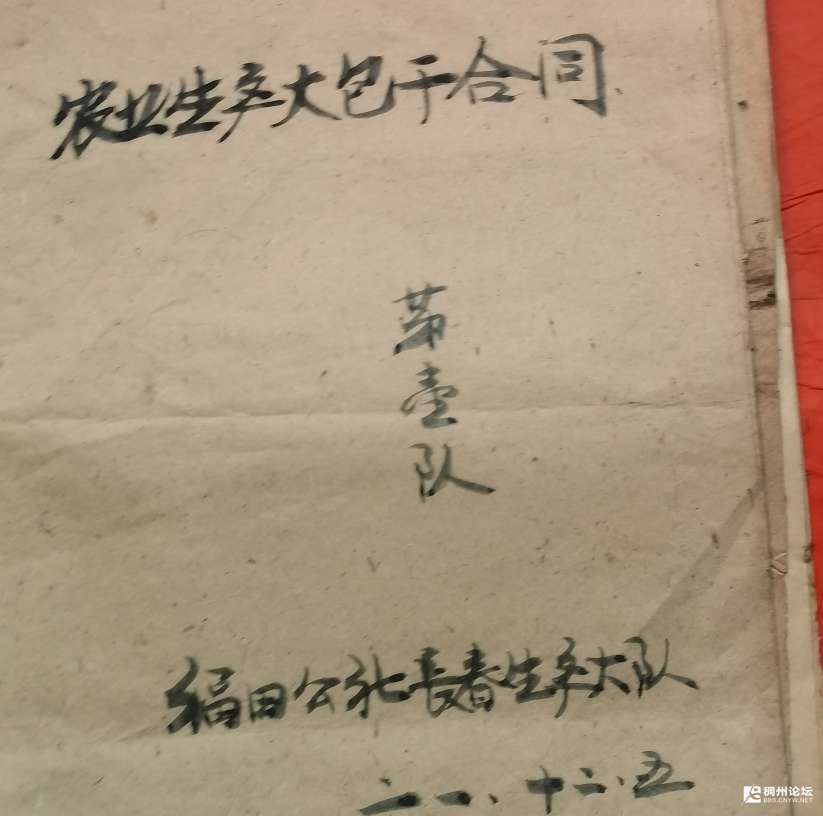 农业生产大包干合同
第壹队
福田公社長春生产大队
十二.五
稠州论坛
BBS.CNYW.NET